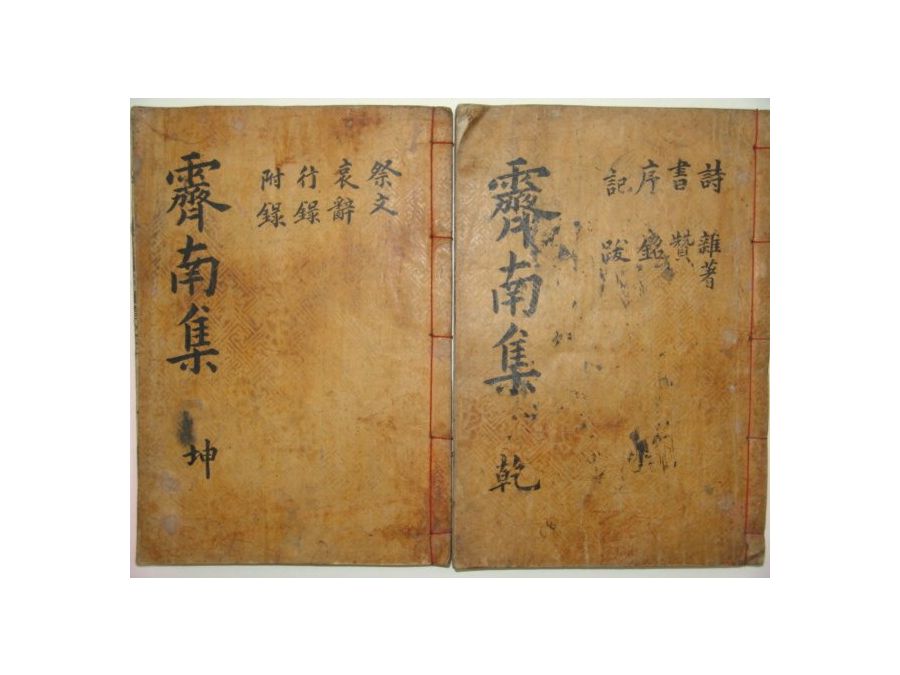 詩 雜著
書 贊
序 銘
記 跋
霽南集 乾
祭文
哀辭
行錄
附錄
霽南集 坤